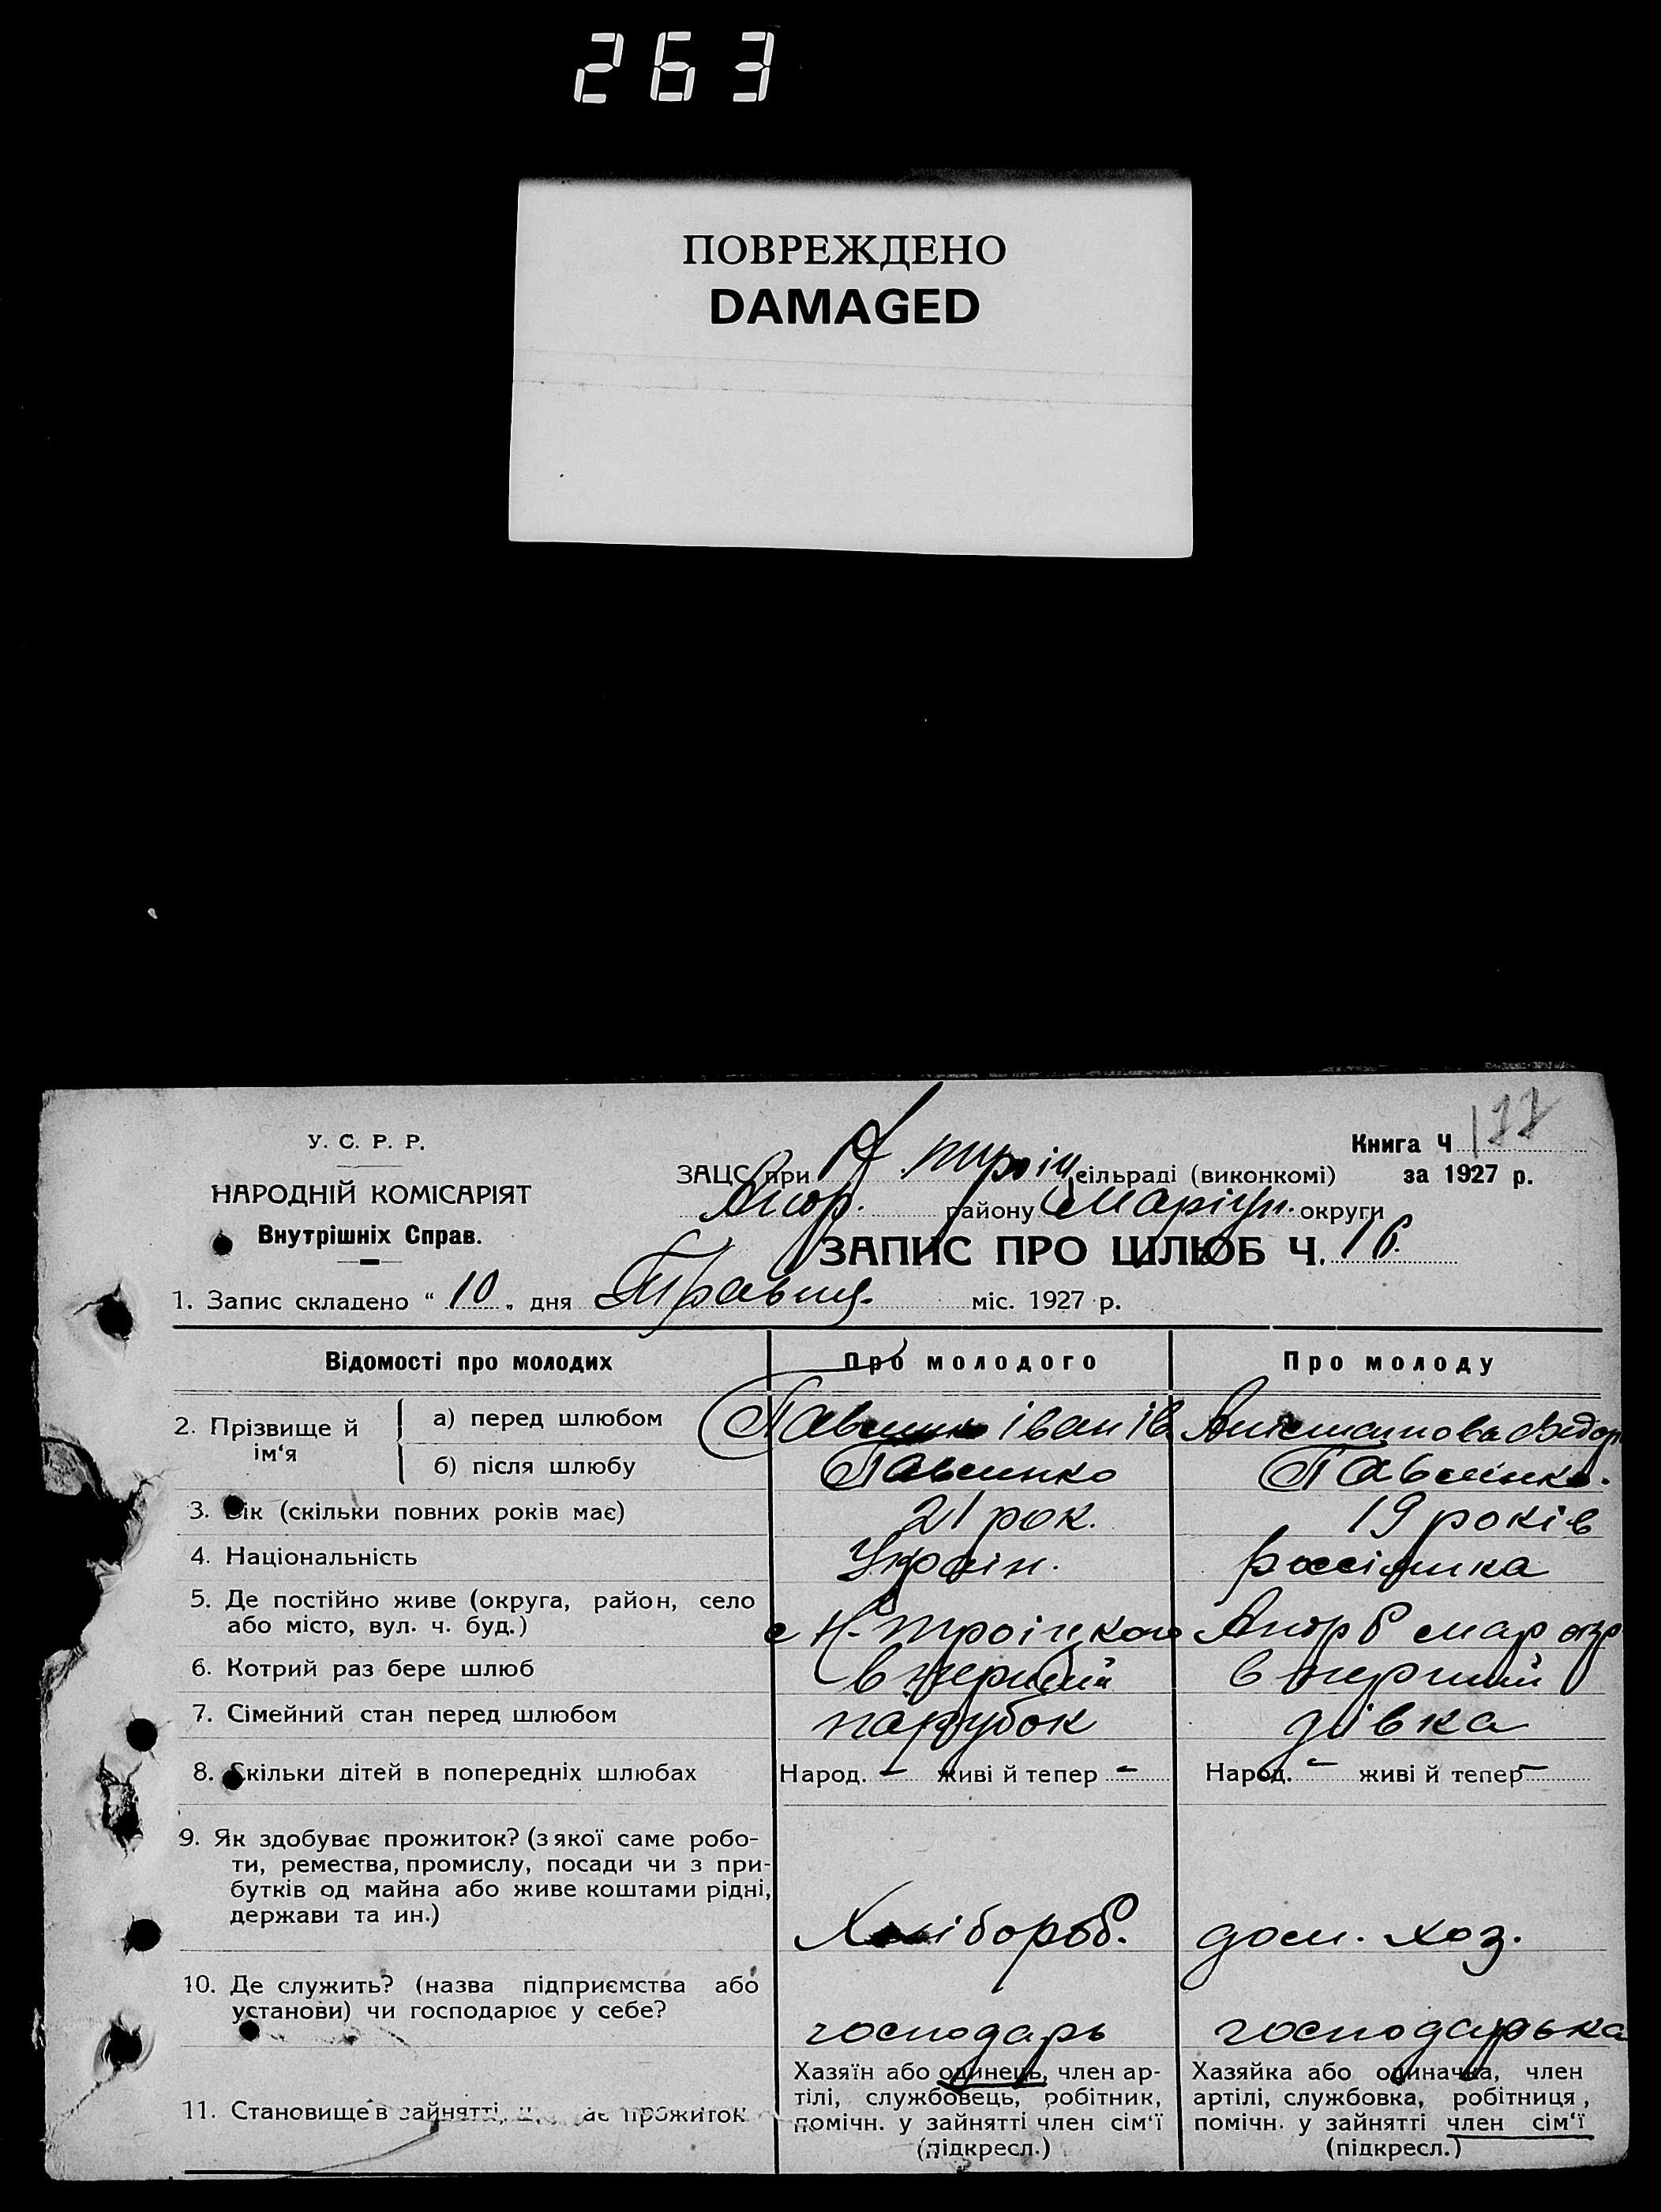 263
ПОВРЕЖДЕНО
DAMAGED
У. С. Р. Р.
НАРОДНІЙ КОМІСАРІЯТ
Внутрішніх Справ.
Книга Ч 177
ЗАЦС при Н троіц сільраді (виконкомі) за 1927 р.
району Маріуп. округи
ЗАПИС ПРО ШЛЮБ Ч. 16.
1. Запис складено “ 10 „ дня Травня. міс. 1927 р.
Відомості про молодих Про молодого Про молоду
2. Прізвище й ім‘я
а) перед шлюбом іван ів
б) після шлюбу
3. Вік (скільки повних років має) 21 рок. 19 років
4. Національність Україн. россіянка
5. Де постійно живе (округа, район, село
або місто, вул. ч. буд.) с Н-троіцкого
6. Котрий раз бере шлюб в перший в перший
7. Сімейний стан перед шлюбом парубок дівка
8. Скільки дітей в попередніх шлюбах Народ. – живі й тепер – Народ. – живі й тепер –
9. Як здобуває прожиток? (з якої саме робо-
ти, ремества, промислу, посади чи з при-
бутків од майна або живе коштами рідні,
держави та ин.) Хлібороб. дом. хоз.
10. Де служить? (назва підприємства або
установи) чи господарює у себе? господарь господарька
11. Становище в зайнятті, прожиток
Хазяїн або одинець, член ар-
тілі, службовець, робітник,
помічн. у зайнятті член сім‘ї
(підкресл.)
Хазяйка або одиначка, член
артілі, службовка, робітниця,
помічн. у зайнятті член сім‘ї
(підкресл.)